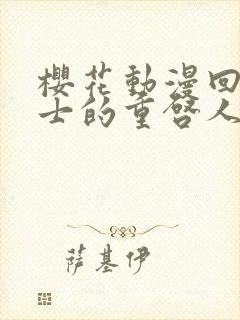 櫻花動漫回
士的重啓人
萨基伊